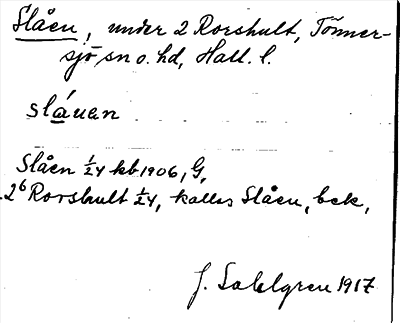 Slåen, under 2 Rorshult, Tönner-
sjö sn o. hd, Hall. l.
slá̱uan
Slåen 1/24 kb 1906, G,
2⁶ Rorshult 1/24, kallas Slåen, bek,
J. Sahlgren 1917